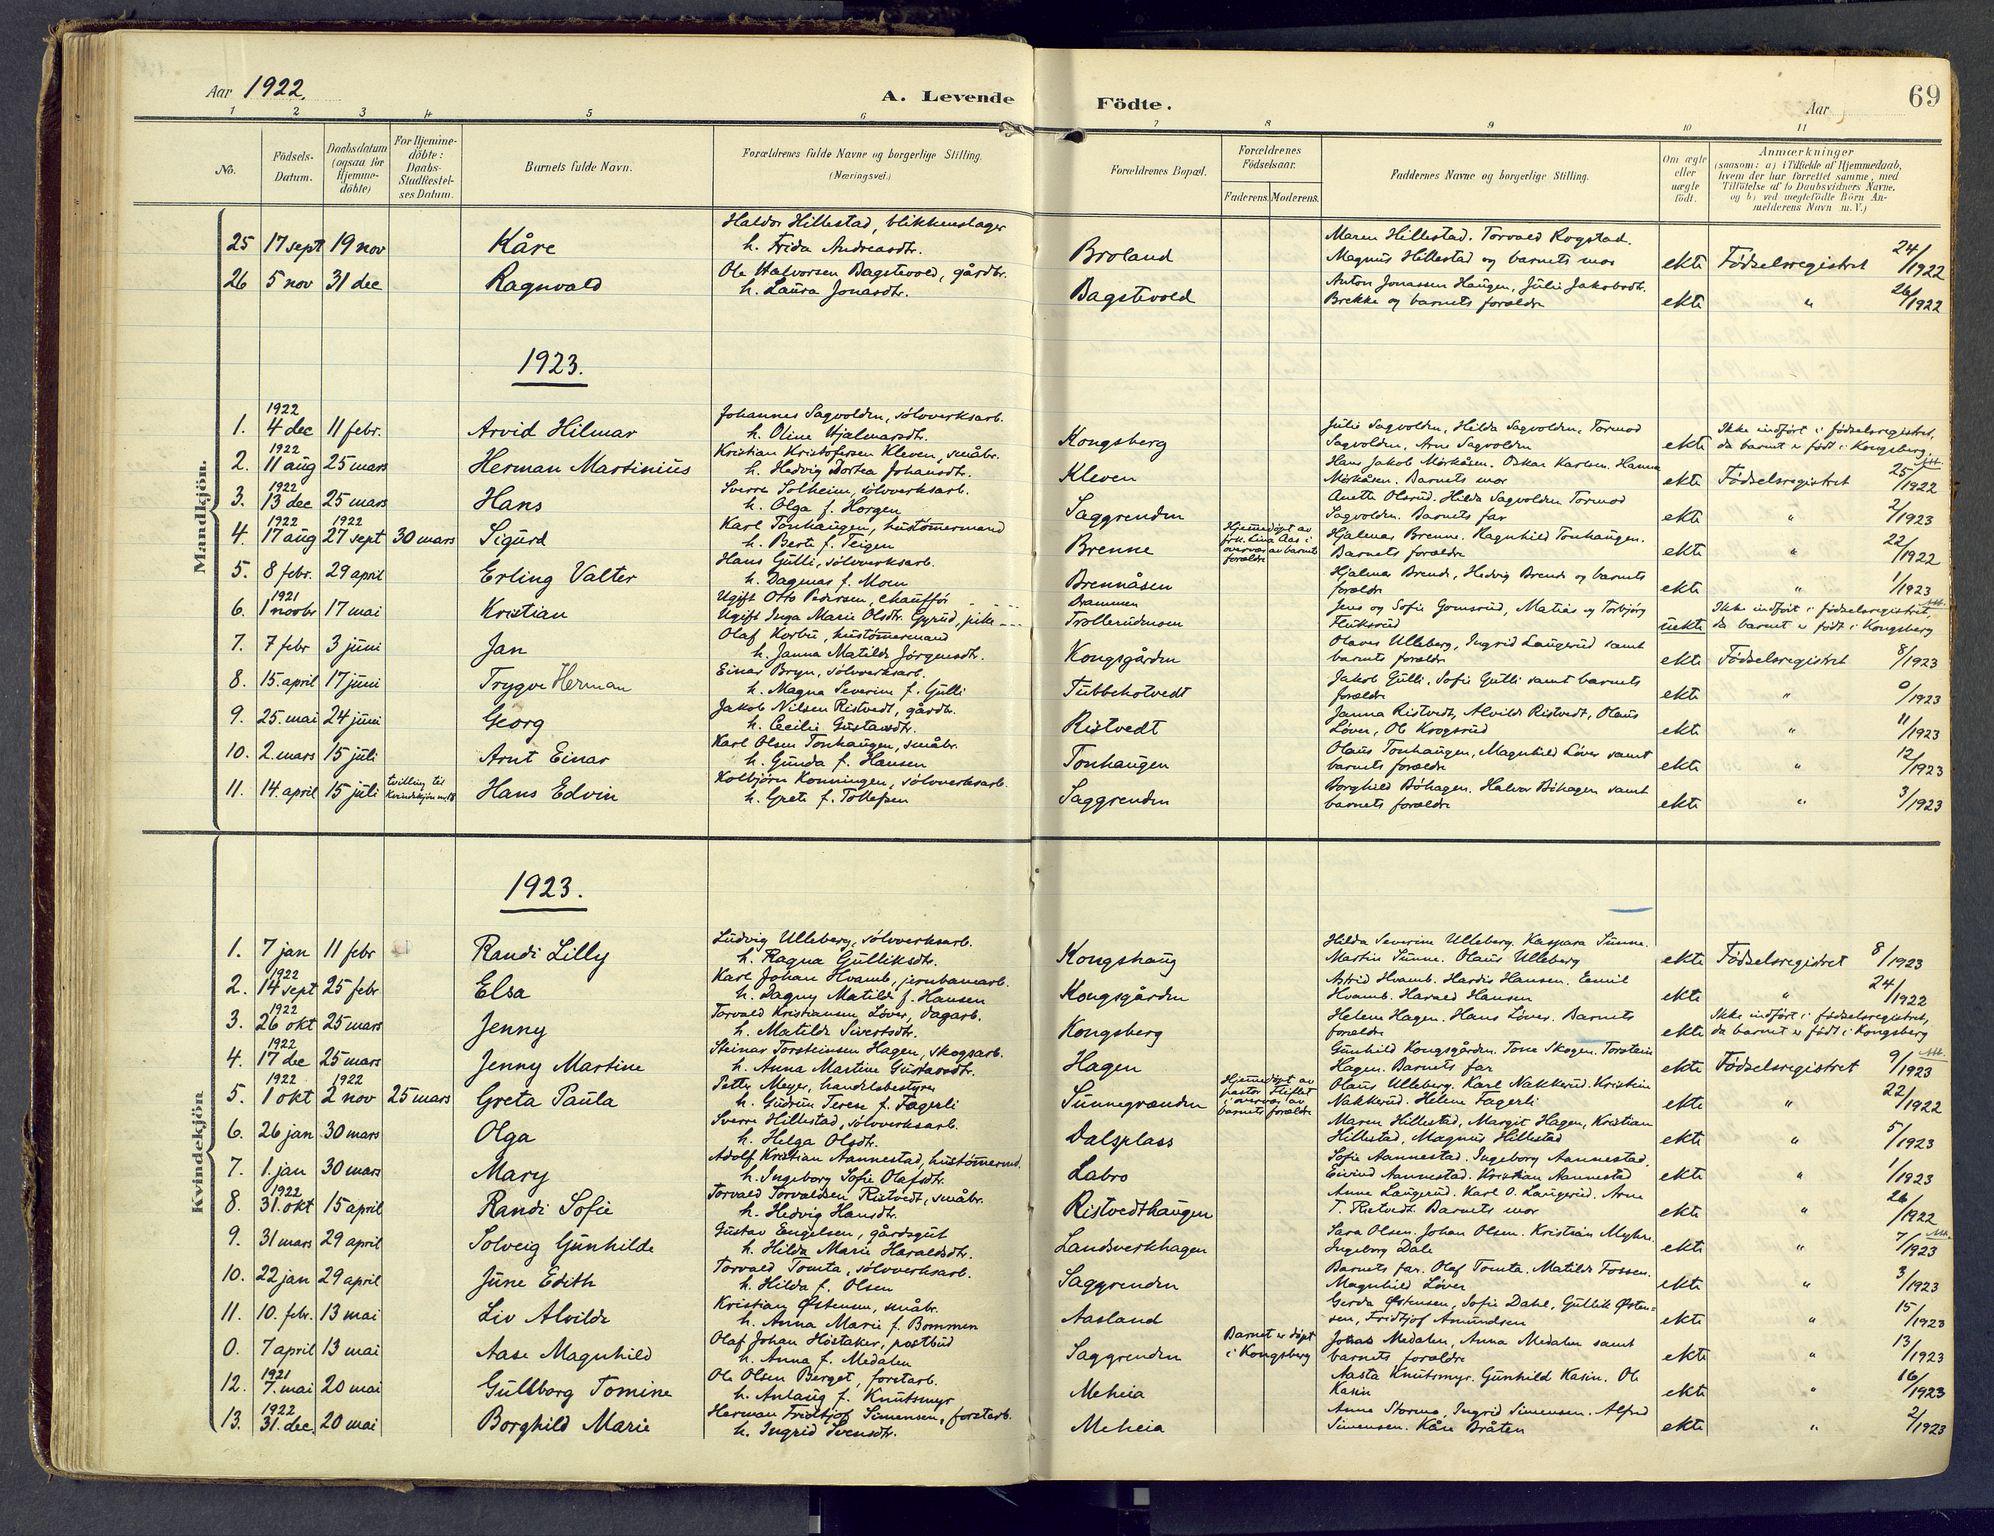 Aar 1922. A. Levende Fødte. Aar 69
1 2 3 4 5 6 7 8 9 10 11
No. Födsels-Datum. Daabsdatum (ogsaa for Hjemmedöbte) For Hjemmedöbte: Daabs-Stadfæstelses Datum. Barnets fulde Navn. Forældrenes fulde Navne og borgerlige Stilling. (Næringsvei.) Forældrenes Bopæl. Forældrenes Födselsaar. Faderens. Moderens. Faddernes Navne og borgerlige Stilling. Om ægte eller uægte födt. Anmærkninger (saasom: a) i Tilfælde af Hjemmedaab, hvem der har forrettet samme, med Tilföielse af to Daabsvidners Navne. og b) ved uægtefödte Börn Anmelderens Navn m. V.)
Mandkjön.
25 17 sept 19 nov Kåre Haldor Hillestad, blikkenslager h. Frida Andreasdtr. Broland Maren Hillestad. Torvald Rogstad. Magnus Hillestad og barnets mor ekte Fødselsregistret 24/1922
26 5 nov 31 dec Ragnvald Ole Halvorsen Bagstevold, gårdbr. h. Laura Jonasdtr. Bagstevold Anton Jonassen Haugen, Julie Jakobsdtr. Brekke og barnets forældre ekte " 26/1922
1923.
1. 1922 4 dec 11 febr. Arvid Hilmar Johannes Sagvolden, sølvverksarb. h. Oline Hjalmarsdtr. Kongsberg Julie Sagvolden, Hilda Sagvolden, Tormod Sagvolden, Arne Sagvolden ekte Ikke indført i fødselsregistret, da barnet er født i Kongsberg.
2. 1922 11 aug 25 mars Herman Martinius Kristian Kristofersen Kleven, småbr. h. Hedvig Dortea Johansdtr. Kleven Hans Jakob Mørkåsen. Oskar Karlsen. Hanna Mørkåsen. Barnets mor ekte Fødselsregistret 25/1922
3. 1922 13 dec 25 mars Hans Sverre Solheim, sølvverksarb. h. Olga f. Horgen Saggrenden Anette Olsrud. Hilda Sagvolden Tormod Sagvolden. Barnets far ekte " 2/1923
4. 1922 17 aug 1922 27 sept 30 mars Sigurd Karl Tonhaugen, hustømermand h. Berte f. Teigen Brenne Hjemmedøpt av frk. Lina Aas i overvær av barnets forældre Hjalmar Brenne. Ragnhild Tonhaugen. Barnets forældre ekte " 22/1922
5. 8 febr. 29 april Erling Valter Hans Gulli, sølvverksarb. h. Dagmar f. Moen Brennåsen Hjalmar Brende, Hedvig Brende og barnets forældre ekte " 1/1923
6. 1921 1 novbr 17 mai Kristian Ugift Otto Pedersen, chauffør Ugift Inga Marie Olsdtr. Gyrud, pike Drammen Trollerudmoen Jens og Sofie Gomsrud, Matias og Torbjørg Fluksrud uekte Ikke indført i fødselsregistret, da barnet er født i Kongsberg
7. 7 febr 3 juni Jan Olaf Korbu, hustømermand h. Janna Matilde Jørgensdtr. Kongsgården Olaves Ulleberg, Ingrid Laugerud samt barnets forældre ekte Fødselsregistret 8/1923
8. 15. april 17 juni Trygve Herman Einar Bryn, sølvverksarb. h. Magna Severine f. Gulli Tubbehotvedt Jakob Gulli, Sofie Gulli samt barnets forældre ekte " 0/1923
9. 25. mai 24 juni Georg Jakob Nilsen Ristvedt, gårdbr. h. Cecilie Gustavsdtr. Ristvedt Janna Ristvedt, Alvilde Ristvedt, Olaus Løver, Ole Krogsrud ekte " 11/1923
10. 2. mars 15 juli Arnt Einar Karl Olsen Tonhaugen, småbr. h. Gunda f. Hansen Tonhaugen Olaus Tonhaugen, Magnhild Løver samt barnets forældre ekte " 12/1923
11. 14. april 15 juli tvilling til Kvindekjøn Hans Edvin Kolbjørn Konningen, sølvverksarb. h. Grete f. Tollefsen Saggrenden Borghild Bøhagen. Halvor Bøhagen samt barnets forældre ekte " 3/1923
Kvindekjön
1923.
1. 7 jan 11 febr Randi Lilly Ludvig Ulleberg, sølvverksarb. h. Ragna Gulliksdtr. Kongshaug Hilda Severine Ulleberg. Kaspara Sunne. Martin Sunne. Olaus Ulleberg ekte Fødselsregistret 8/1923
2. 1922 14 sept 25 febr Elsa Karl Johan Hvamb, jernbanearb. h. Dagny Matilde f. Hansen Kongsgården Astrid Hvamb. Hardis Hansen. Emil Hvamb. Harald Hansen ekte " 24/1922
3. 1922 26 okt 25 mars Jenny Torvald Kristiansen Løver, dagarb. h. Matilde Sivertsdtr. Kongsberg Helene Hagen, Hans Løver. Barnets forældre ekte Ikke indført i fødselsregistret, da barnet er født i Kongsberg
4. 1922 17 dec 25 mars Jenny Martine Steinar Torsteinsen Hagen, skogsarb. h. Anna Martine Gustavsdtr. Hagen Gunhild Kongsgården. Tone Skogen. Torstein Hagen. Barnets far ekte Fødselsregistret 9/1923
5. 1922 1 okt 1922 2 nov 25 mars Greta Paula Petter Meyer, handelsbestyrer h. Gudrun Terese f. Fagerli Sunnegrænden Hjemmedøpt av pastor Hiflet i overvær av barnets forældre Olaus Ulleberg. Karl Nakkerud. Kristine Nakkerud. Helene Fagerli ekte " 22/1922
6. 26 jan 30 mars Olga Sverre Hillestad, sølvverksarb. h. Helga Olsdtr. Dalsplass Maren Hillestad, Margit Hagen, Kristian Hillestad, Magnus Hillestad ekte " 5/1923
7. 1. jan 30 mars Mary Adolf Kristian Aannestad, hustømerm. h. Ingeborg Sofie Olafsdtr. Labro Sofie Aannestad. Ingeborg Aannestad. Eivind Aannestad. Kristian Aannestad ekte " 1/1923
8. 1922 31. okt 15 april Randi Sofie Torvald Torvaldsen Ristvedt, småbr. h. Hedvig Hansdtr. Ristvedthaugen Anne Laugerud. Karl O. Laugerud. Arne T. Ristvedt. Barnets mor ekte " 26/1922
9. 31 mars 29 april Solveig Gunhilde Gustav Engelsen, gårdsgut h. Hilda Marie Haraldsdtr. Landsverkhagen Sara Olsen. Johan Olsen. Kristian Myhre. Ingeborg Dale ekte " 7/1923
10. 22 jan 29 april June Edith Torvald Tomta, sølvverksarb. h. Hilda f. Olsen Saggrenden Barnets far. Olaf Tomta. Matilde Fossen. Magnhild Løver ekte " 3/1923
11. 10. febr. 13 mai Liv Alvilde Kristian Østensen, småbr. h. Anna Marie f. Bommen Aasland Gerda Østensen, Sofie Dahl, Gullik Østensen, Fridtjof Amundsen ekte " 15/1923
0. 7 april 13 mai Aase Magnhild Olaf Johan Høstaker, postbud h. Anna f. Medalen Saggrenden Barnet er døpt i Kongsberg Johan Medalen, Anna Medalen samt barnets forældre ekte " 13/1923
12. 1921 7. mai 20 mai Gullborg Tomine Ole Olsen Berget, forstarb. h. Anlaug f. Knutsmyr Meheia Aasta Knutsmyr. Gunhild Kasin. Ole Kasin ekte " 16/1923
13. 1922 31. dec. 20 mai Borghild Marie Herman Fridtjof Simensen, forstarb. h. Ingrid Svensdtr. Meheia Anna Stormo, Ingrid Simensen. Alfred Simensen. Kåre Bråten ekte " 2/1923